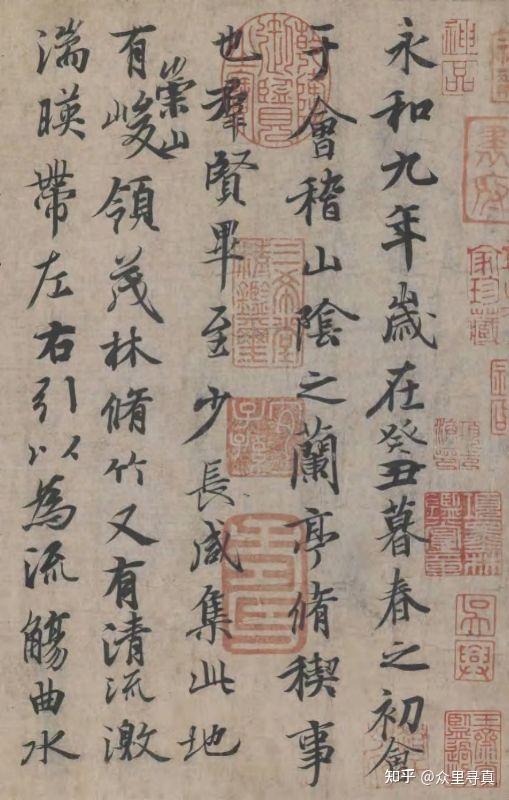 永和九年歲在癸丑暮春之初會
于會稽山陰之蘭亭脩稧事
也羣賢畢至少長咸集此地
有崇山峻領茂林脩竹又有清流激
湍暎帶左右引以為流觴曲水
神品
家珍藏
三希堂精鑑璽
宜子孫
知乎 @众里寻真